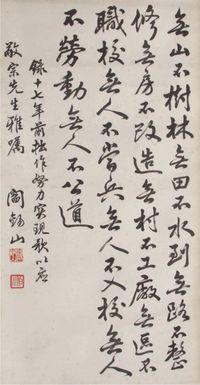 無山不樹林無田不水到無路不整
修無房不改造無村不工廠無區不
職校無人不當兵無人不入校無人
不勞動無人不公道
錄十七年前拙作努力實現歌以應
敬宗先生雅囑 閻錫山